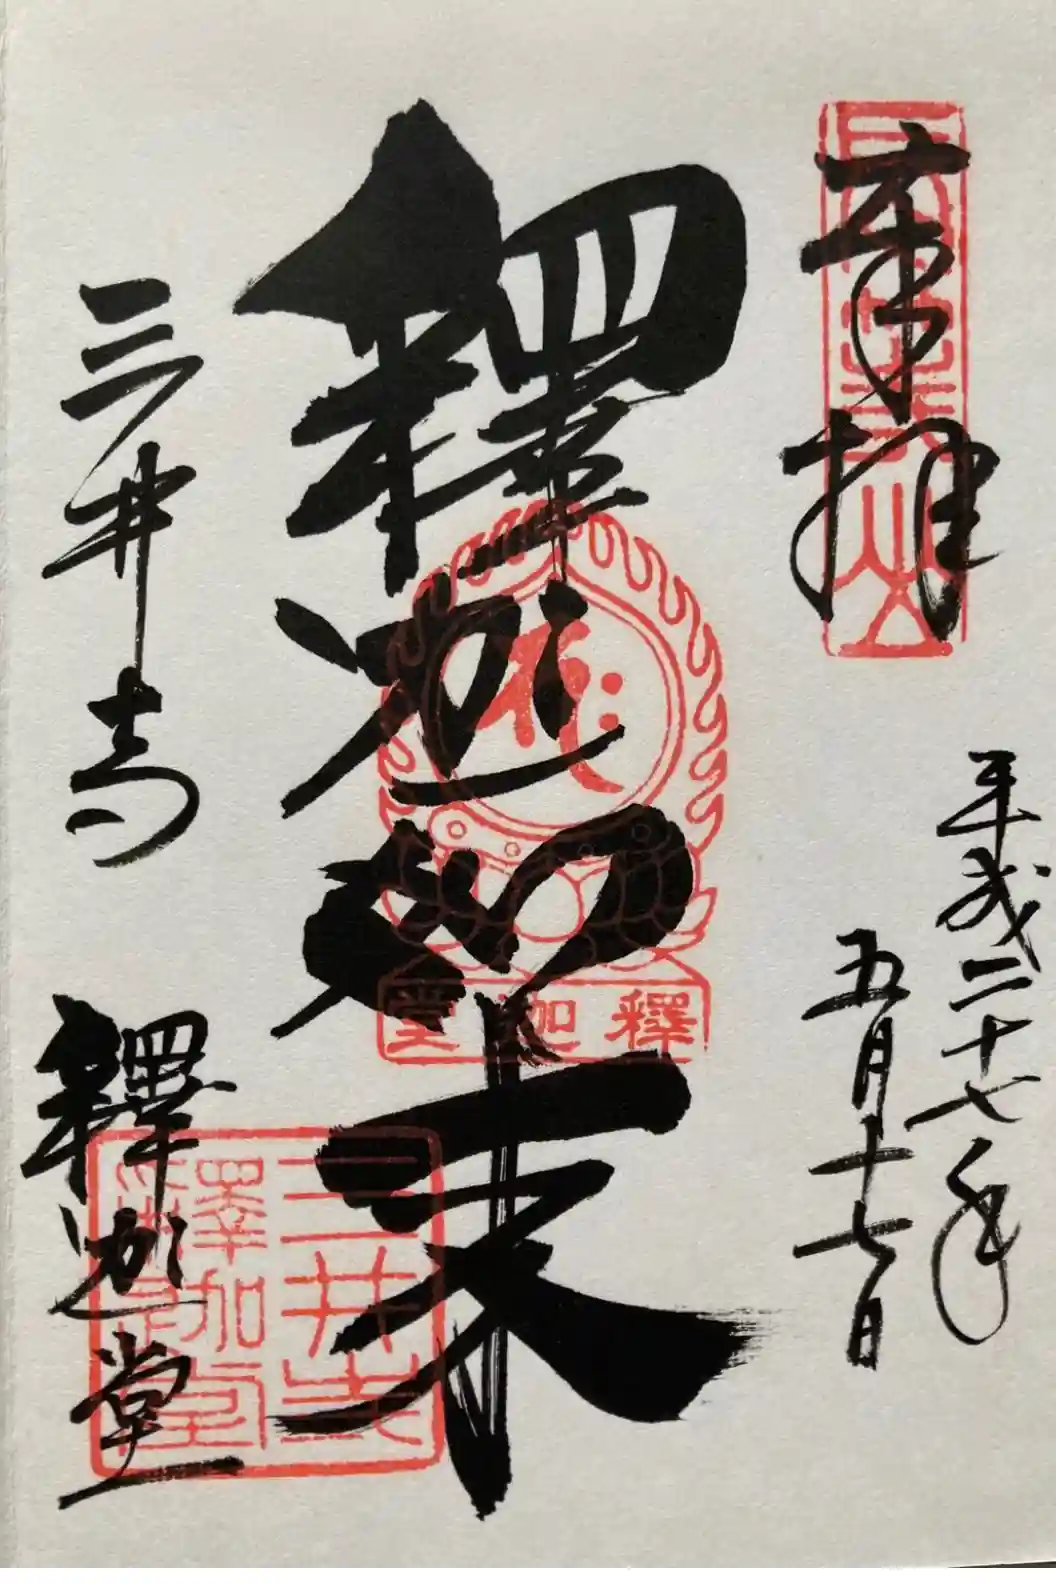 奉拝
平成二十七年
五月十七日
釋迦如来
釋迦堂
三井寺
釋迦堂
三井寺
釋迦堂